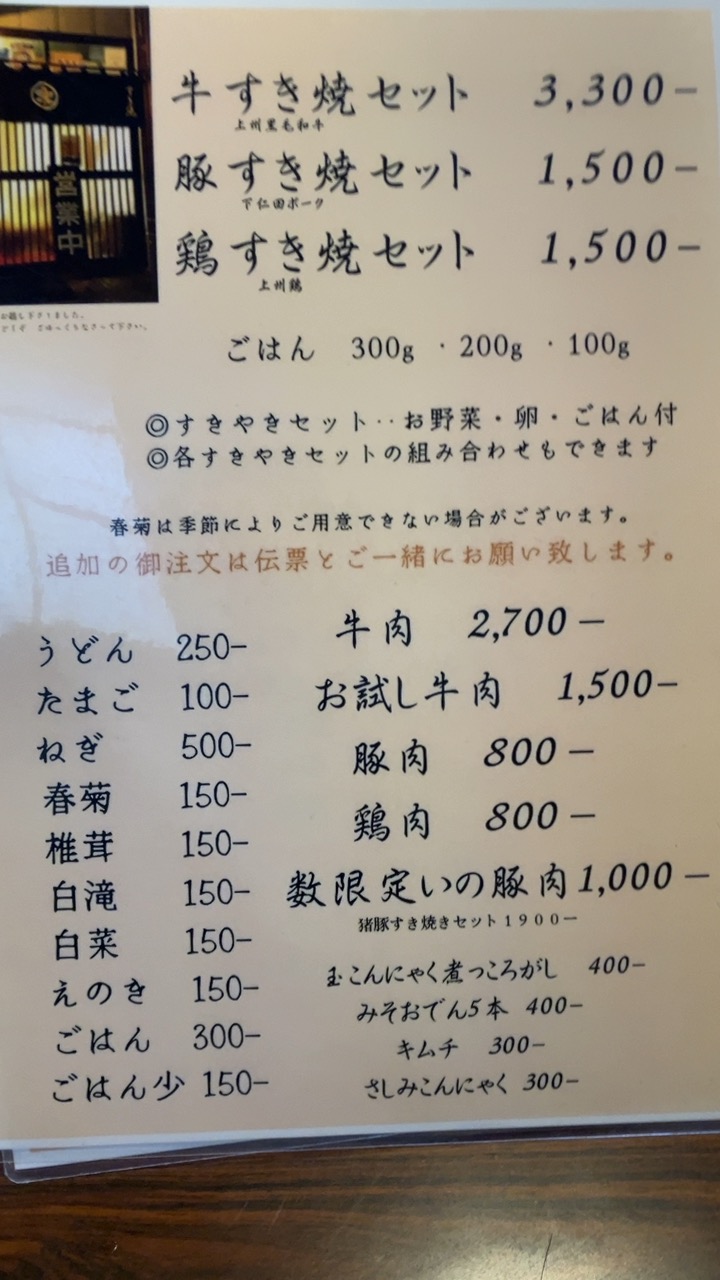 営業中
牛 すき焼 セット 3,300−
上州黒毛和牛
豚 すき焼 セット 1,500−
下仁田ポーク
鶏 すき焼 セット 1,500−
上州鶏
ごはん 300g ・200g ・100g
◎すきやきセット‥お野菜・卵・ごはん付
◎各すきやきセットの組み合わせもできます
春菊は季節によりご用意できない場合がございます。
追加の御注文は伝票とご一緒にお願い致します。
うどん 250−
たまご 100−
ねぎ 500−
春菊 150−
椎茸 150−
白滝 150−
白菜 150−
えのき 150−
ごはん 300−
ごはん少 150−
牛肉 2,700−
お試し牛肉 1,500−
豚肉 800−
鶏肉 800−
数限定いの豚肉 1,000−
猪豚すき焼きセット1900−
玉こんにゃく煮っころがし 400−
みそおでん5本 400−
キムチ 300−
さしみこんにゃく 300−